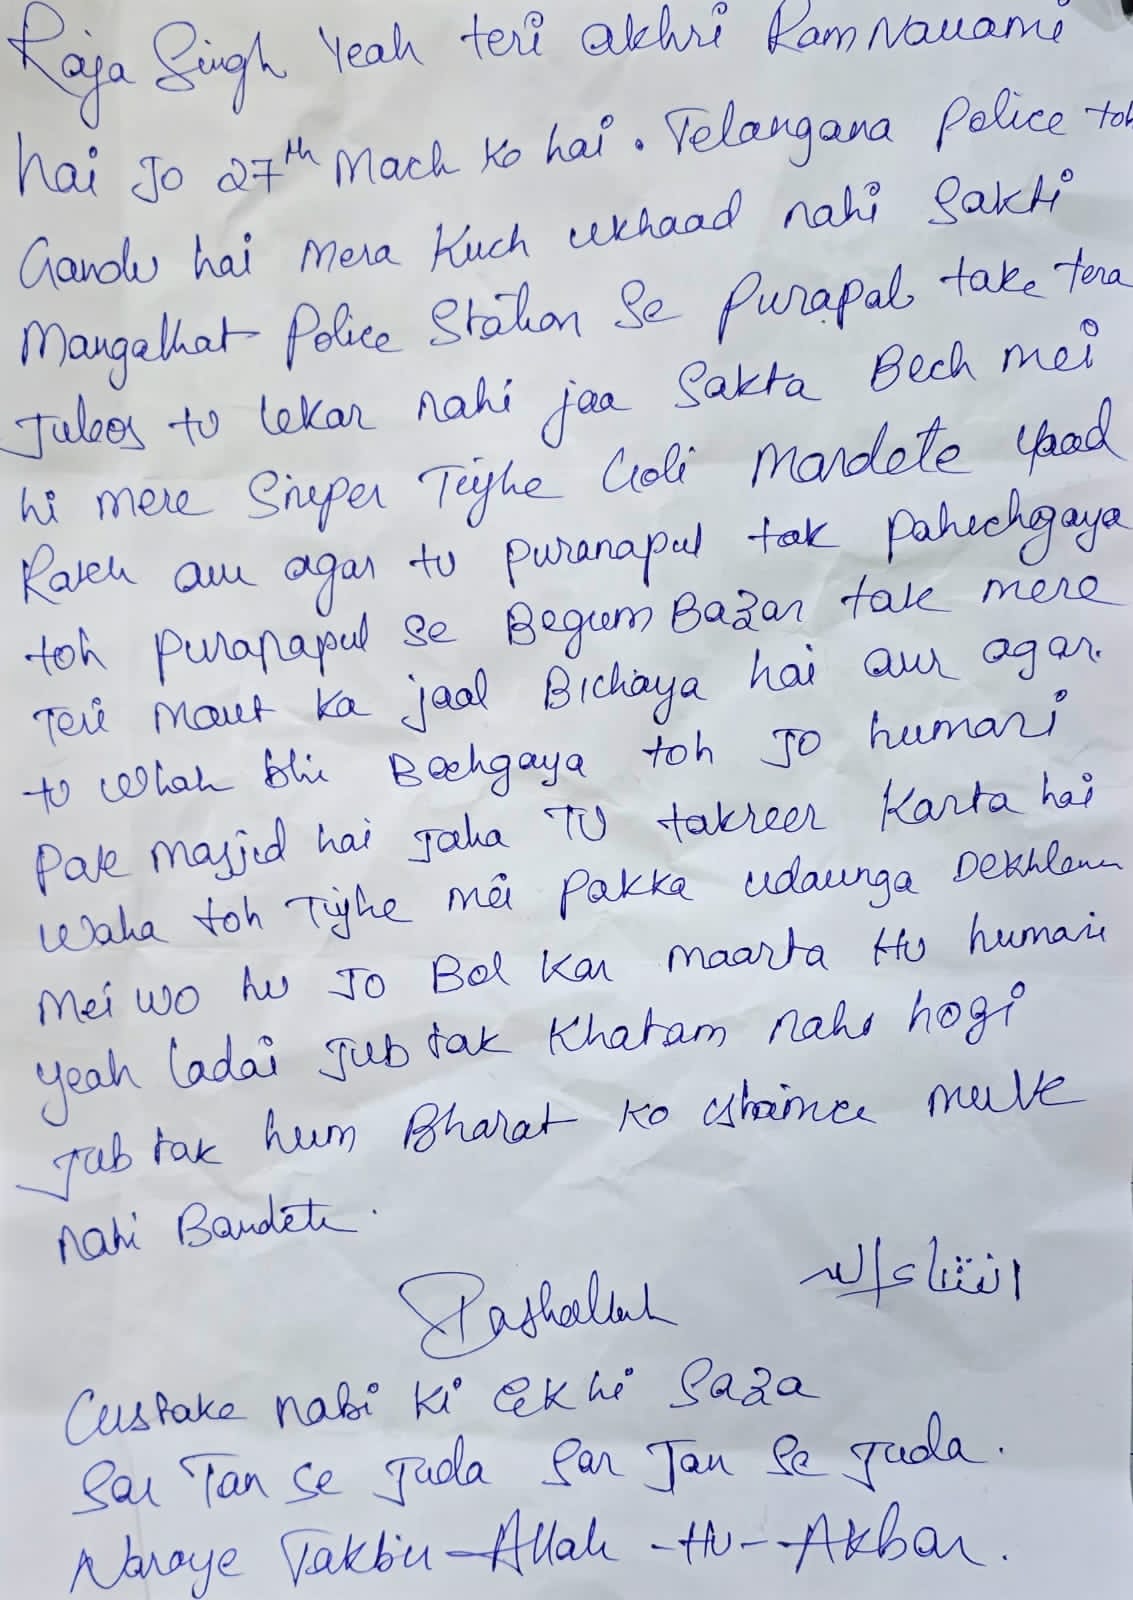 Raja Singh Yeah teri akhri Ram Navami
hai Jo 27th Mach ko hai. Telangana Police toh
Gandu hai mera Kuch ukhaad nahi Sakti
Mangalhat Police Station Se Purapal take tera
Juloos tu lekar nahi jaa Sakta Bech mei
hi mere Sniper Tujhe Goli mardete yaad
Rakh aur agar tu puranapul tak pahuchgaya
toh puranapul se Begum Bazar tak mere
Teri maut ka jaal Bichaya hai aur agar.
tu whah bhi Bachgaya toh Jo humari
Pak masjid hai Jaha TU takreer Karta hai
waha toh Tujhe mei pakka udaunga Dekhlena
mei wo hu Jo Bol kar maarta Hu humari
yeah ladai Jub tak Khatam nahi hogi
Jub tak hum Bharat ko mulk
nahi Bandete.
انشاءالله
Custake nabi ki Ek hi Saza
Sar Tan se Juda Sar Tan Se Juda.
Naraye Takbir - Allah - Hu - Akbar.